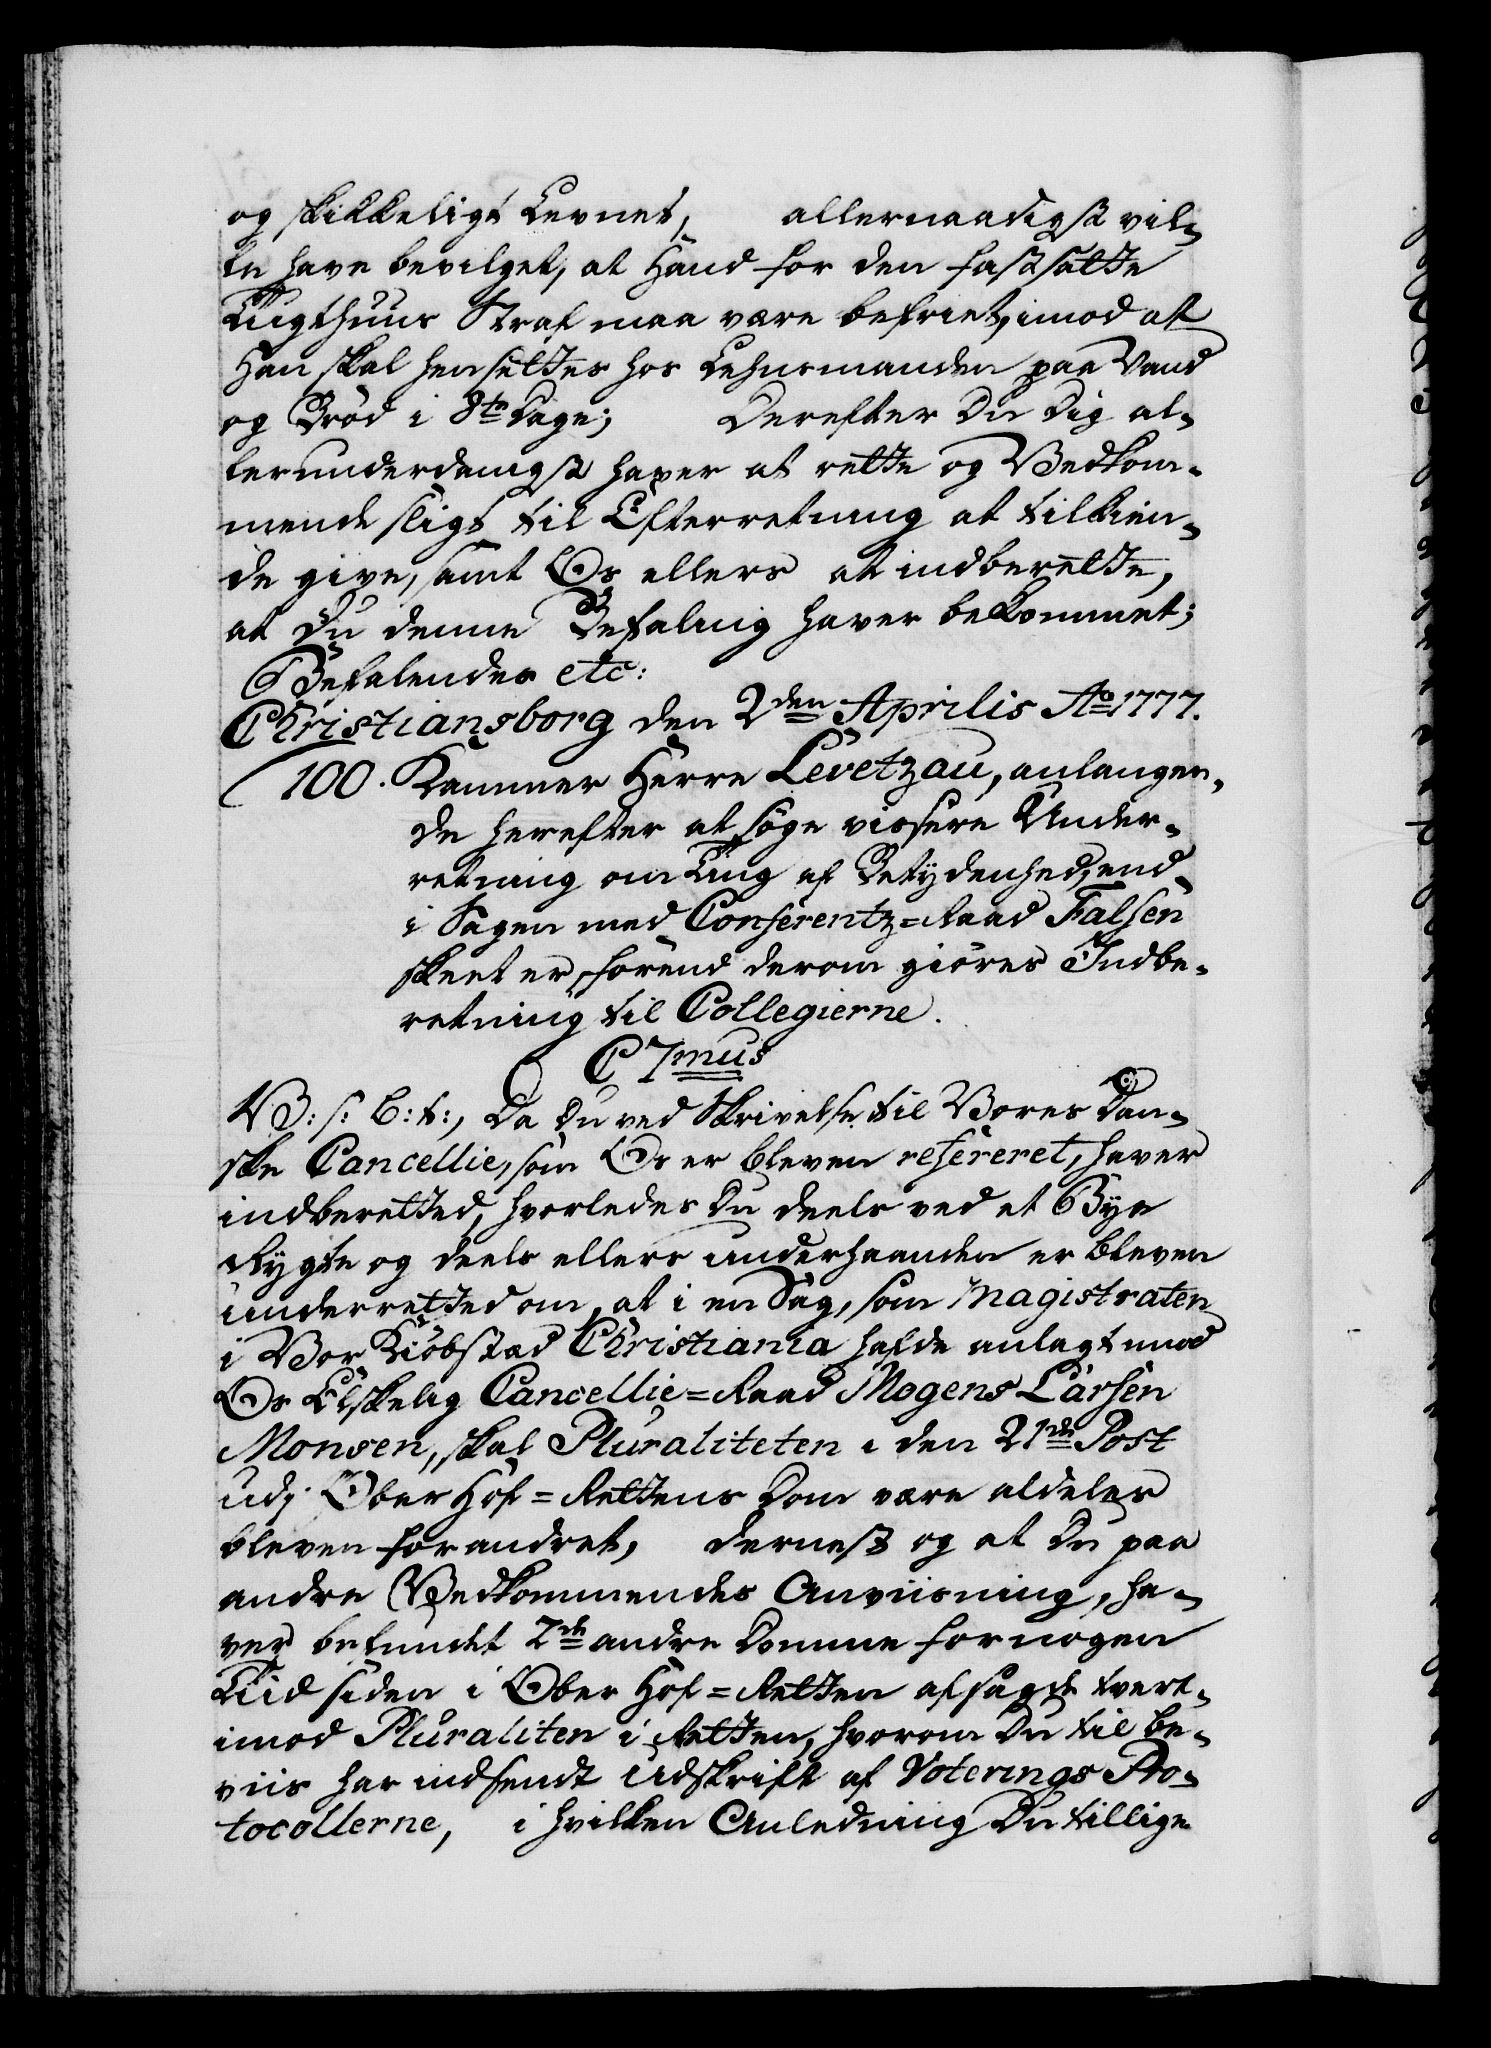 og skikkeligt Levnet, allernaadigst vil-
le have bevilget, at Hand for den fastsatte
Tugthuus Straf maa være befriet, imod at
Han skal hensettes hos Lehnsmanden paa Vand
og Brød i 8te Dage; Derefter Du Dig al-
lerunderdanigst haver at rette og Vedkom-
mende sligt til Efterretning at tilkien-
de give, samt Os ellers at indberette,
at Du denne Befaling haver bekommet;
Befalendes etc:
Christiansborg den 2den Aprilis Ao 1777.
100. Kammer Herre Levetzau, anlangen-
de herefter at søge vissere Under-
retning om Ting af Betydenhed, end
i Sagen med Conferentz=Raad Falsen
skeet er, førend derom giøres Indbe-
retning til Collegierne.
C 7mus
V: s: G: t:, Da Du ved Skrivelse til Vores Dan-
ske Cancellie, som Os er bleven refereret, haver
indberetted, hvorledes Du deels ved et Bye
Rygte og deels ellers underhaanden er bleven
underretted om, at i en Sag, som Magistraten
i Vor Kiøbstad Christiania hafde anlagt imod
Os Elskelig Cancellie=Raad Mogens Larsen
Monsen, skal Pluraliteten i den 21de Post
udj Ober Hof=Rettens Dom være aldeles
bleven forandret, dernest og at Du paa
andre Vedkommendes Anviisning, ha-
ver befundet 2de andre Domme for nogen
Tiid siden i Ober Hof=Retten afsagde tvert-
imod Pluraliten i Retten, hvorom Du til Be-
viis har indsendt Udskrift af Voterings Pro-
tocollerne, i hvilken Anledning Du tillige